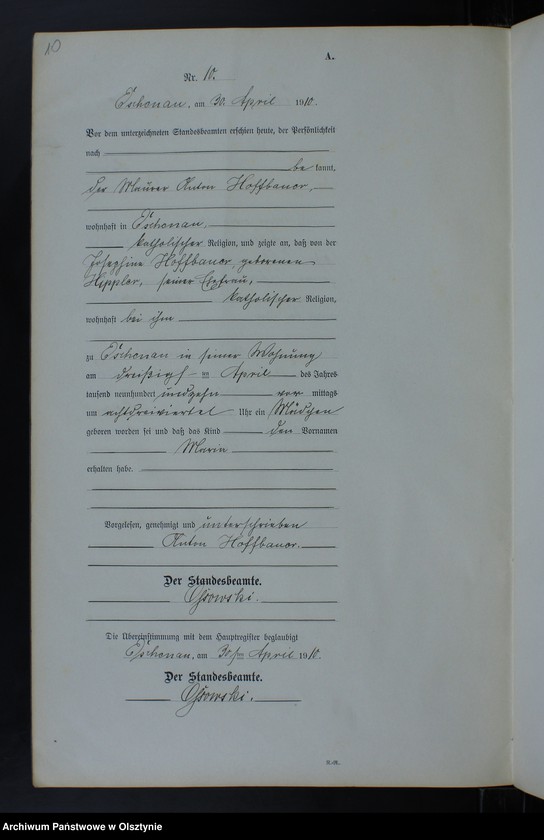 10
A.
Nr. 10.
Tschenau, am 30 April 1910.
Vor dem unterzeichneten Standesbeamten erschien heute, der Persönlichkeit
nach
be kannt,
der Maurer Anton Hoffbauer,
wohnhaft in Tschenau,
katholischer Religion, und zeigte an, daß von der
Josephine Hoffbauer, geborenen
Hippler, seiner Ehefrau,
katholischer Religion,
wohnhaft bei ihm
zu Tschenau in seiner Wohnung
am dreißigst en April des Jahres
tausend neunhundert undzehn vor mittags
um achtdreiviertel Uhr ein Mädchen
geboren worden sei und daß das Kind den Vornamen
Maria
erhalten habe.
Vorgelesen, genehmigt und unterschrieben
Anton Hoffbauer.
Der Standesbeamte.
Die Übereinstimmung mit dem Hauptregister beglaubigt
Tschenau, am 30 ten April 1910.
Der Standesbeamte.
R.-R.
Archiwum Państwowe w Olsztynie